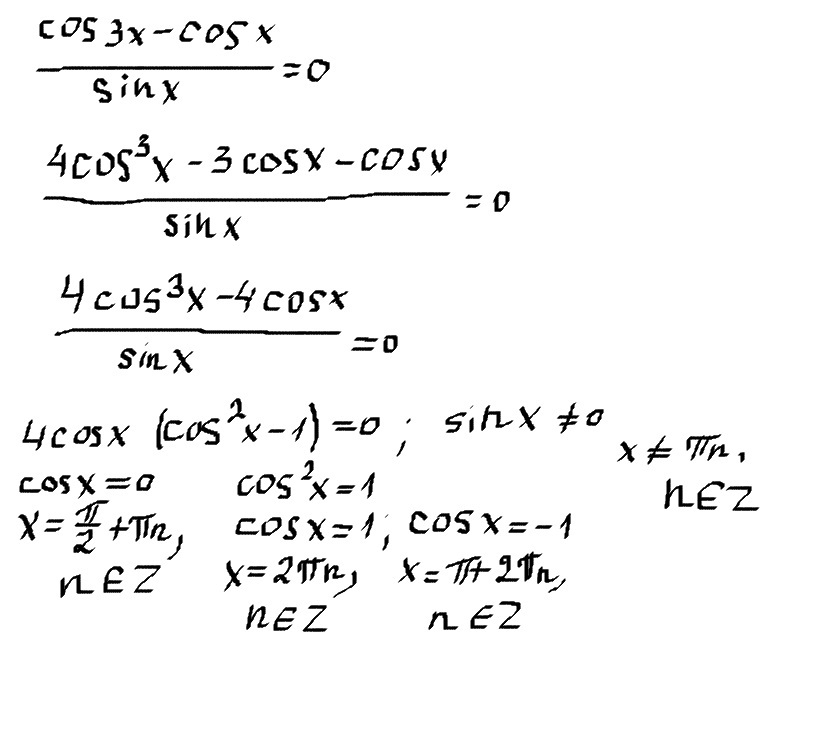 cos 3x - cos x
sin x = 0
4cos³x - 3 cosx - cosx
sin x = 0
4 cos³x - 4 cosx
sin x = 0
4cosx (cos²x - 1) = 0 ; sin x ≠ 0
x ≠ πn,
cosx = 0 cos²x = 1 n ∈ Z
x = π/2 + πn, cosx = 1, cosx = -1
n ∈ Z x = 2πn, x = π + 2πn,
n ∈ Z n ∈ Z